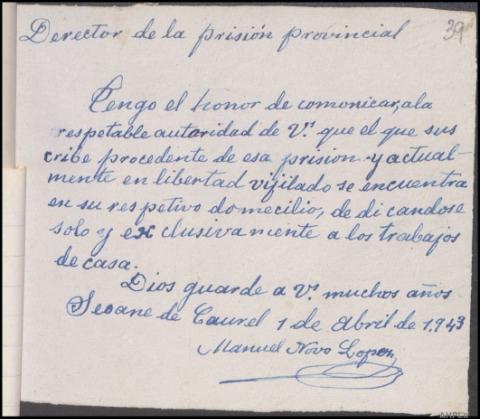 Derector de la prisión provincial
39
Tengo el honor de comunicar, a la
respetable autoridad de V. que el que sus
cribe procedente de esa prision y actual-
mente en libertad vijilado se encuentra
en su respetivo domicilio, de di candose
solo y exclusivamente a los trabajos
de casa.
Dios guarde a V. muchos años
Seoane de Caurel 1 de Abril de 1.943
Manuel Novo Lopez